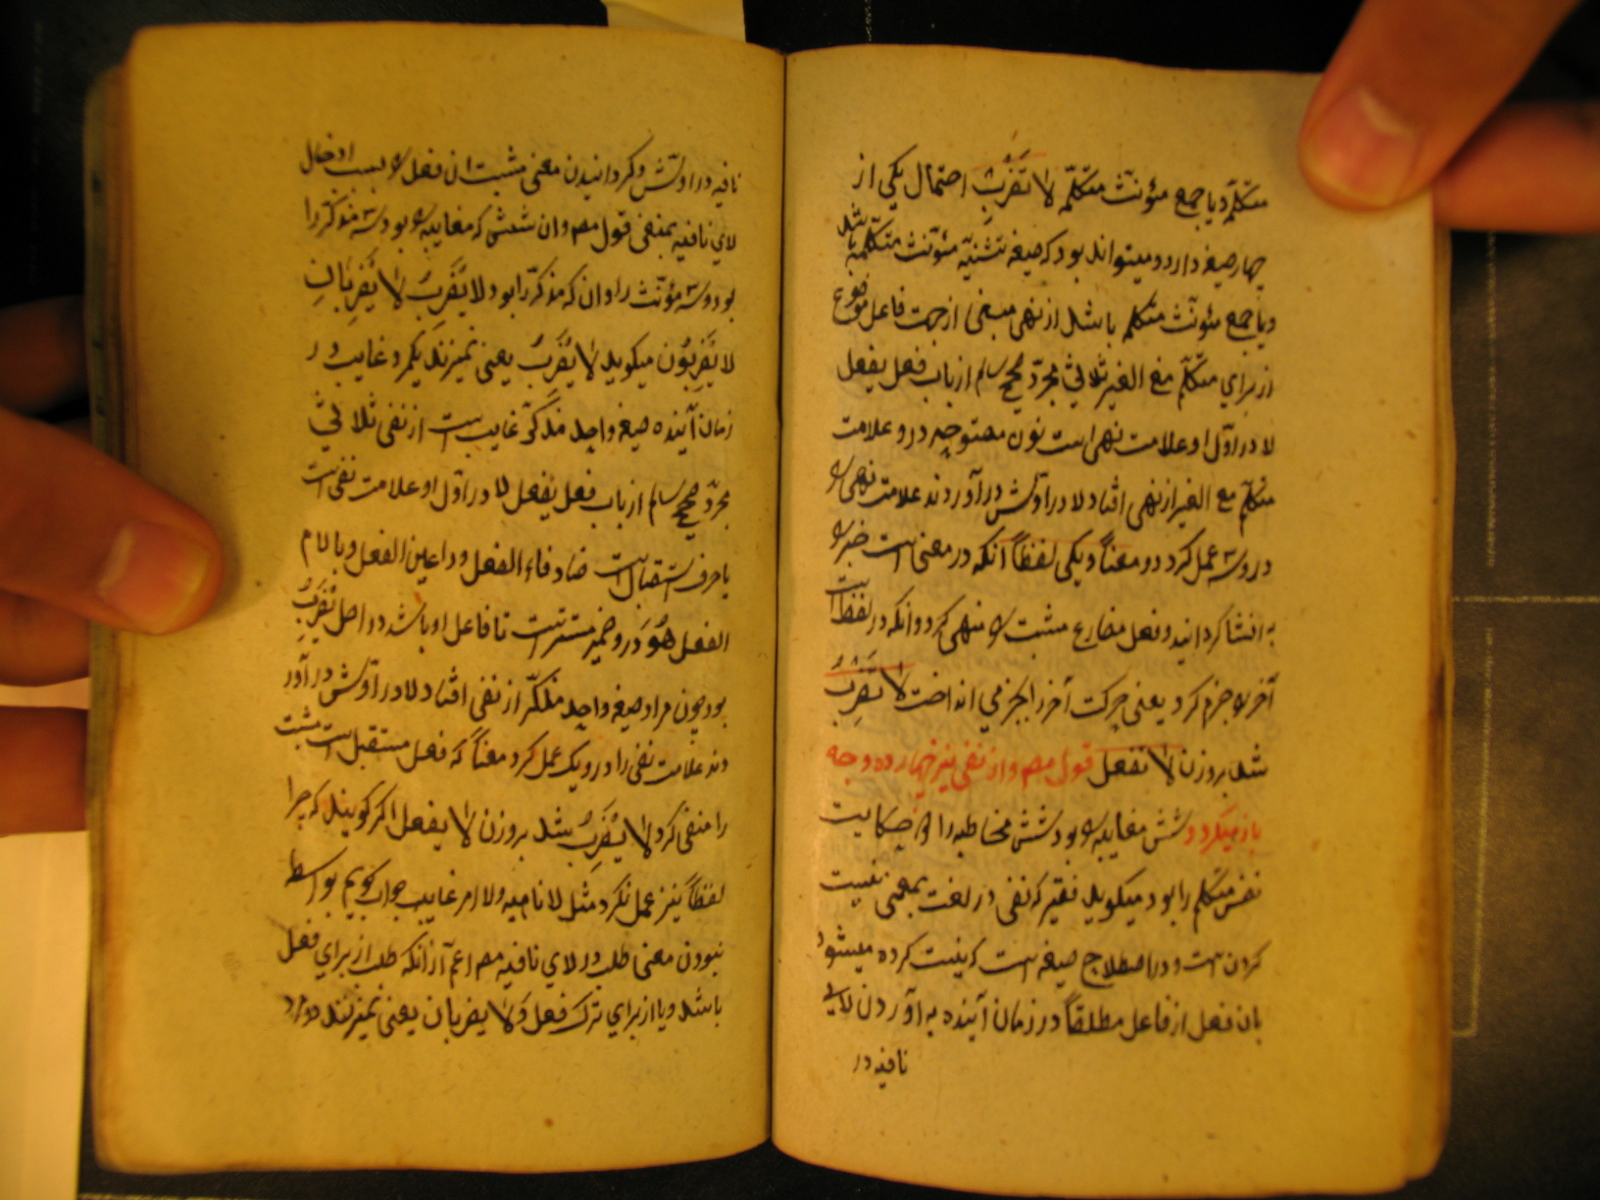 متکلّم و یا جمع مؤنث متکلّم لا نَضْرِبْ احتمال یکی از
چهار صیغه دارد و میتواند بود که صیغه تثنیه مؤنث متکلم باشد
و یا جمع مؤنث متکلم باشد از نهی مبنی از جهت فاعل موضوع
از برای متکلّم مع الغیر ثلاثی مجرّد صحیح سالم از باب فعل یفعل
لا در اوّل او علامت نهی است نون مفتوحه درو علامت
متکلّم مع الغیر از نهی افتاد لا در اوّلش در آوردند علامت نهی را
در و سه عمل کرد دو معناً و یکی لفظاً آنکه در معنی است خبر را
به انشا گردانید و فعل مضارع مثبت را منهی کرد و آنکه در لفظ است
آخر را جزم کرد یعنی حرکت آخر را بجزمی انداخت لا نَضْرِبْ
شد بروزن لا نفعل قول مص و از نفی نیز چهارده وجه
باز میگردد شش مغایبه را بود شش مخاطبه را و حکایت
نفس متکلم را بود میگوید فقیر که نفی در لغت بمعنی نیست
کردن است و در اصطلاح صیغه است که نیست کرده میشود
بان فعل از فاعل مطلقاً در زمان آینده به آوردن لای
نافیه در
نافیه در اوّلش و گردانیدن معنی مثبت ان فعل را بسبب ادخال
لای نافیه بمنفی قول مص و ان شش که مغایبه را بود سه مذکّر را
بود و سه مؤنّث را و ان که مذکّر را بود لا یَضْرِبُ لا یَضْرِبانِ
لا یَضْرِبُون میگوید لا یَضْرِبُ یعنی نمیزند یکمرد غایب در
زمان آینده صیغه واحد مذکّر غایب است از نفی ثلاثی
مجرّد صحیح سالم از باب فعل یفعل لا در اوّل او علامت نفی است
یا حرف استقبال است ضاد فاء الفعل و را عین الفعل و با لام
الفعل هُوَ درو ضمیر مستتر است تا فاعل او باشد در اصل یَضْرِبُ
بود چون مراد صیغه واحد مذکّر از نفی افتاد لا در اوّلش در آور
دند علامت نفی را درو یک عمل کرد معناً که فعل مستقبل است مثبت
را منفی کرد لا یَضْرِبُ شد بروزن لا یفعل اگر گویند که چرا
لفظاً نیز عمل نکرد مثل لا ناهیه و لا امر غایب جواب گویم بواسطه
نبودن معنی طلب در لای نافیه مص اعم از آنکه طلب از برای فعل
باشد و یا از برای ترک فعل و لا یضربان یعنی نمیزنند دو مرد